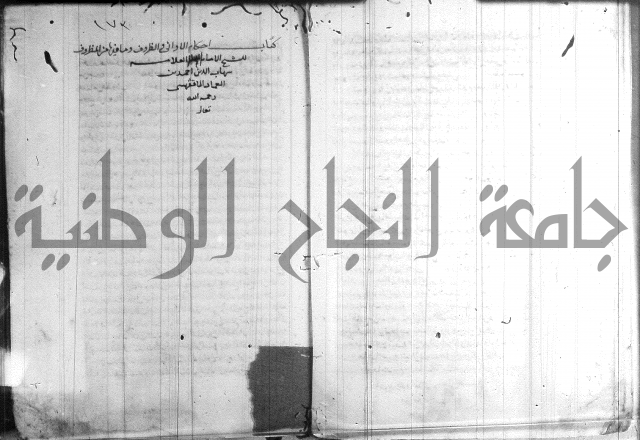 ١٧٣
كتاب احكام الاواني والظروف وما فيها من المظروف
للشيخ الامام العلامة
شهاب الدين احمد بن
العماد الاقفهسي
رحمه الله
تعالى
جامعة النجاح الوطنية